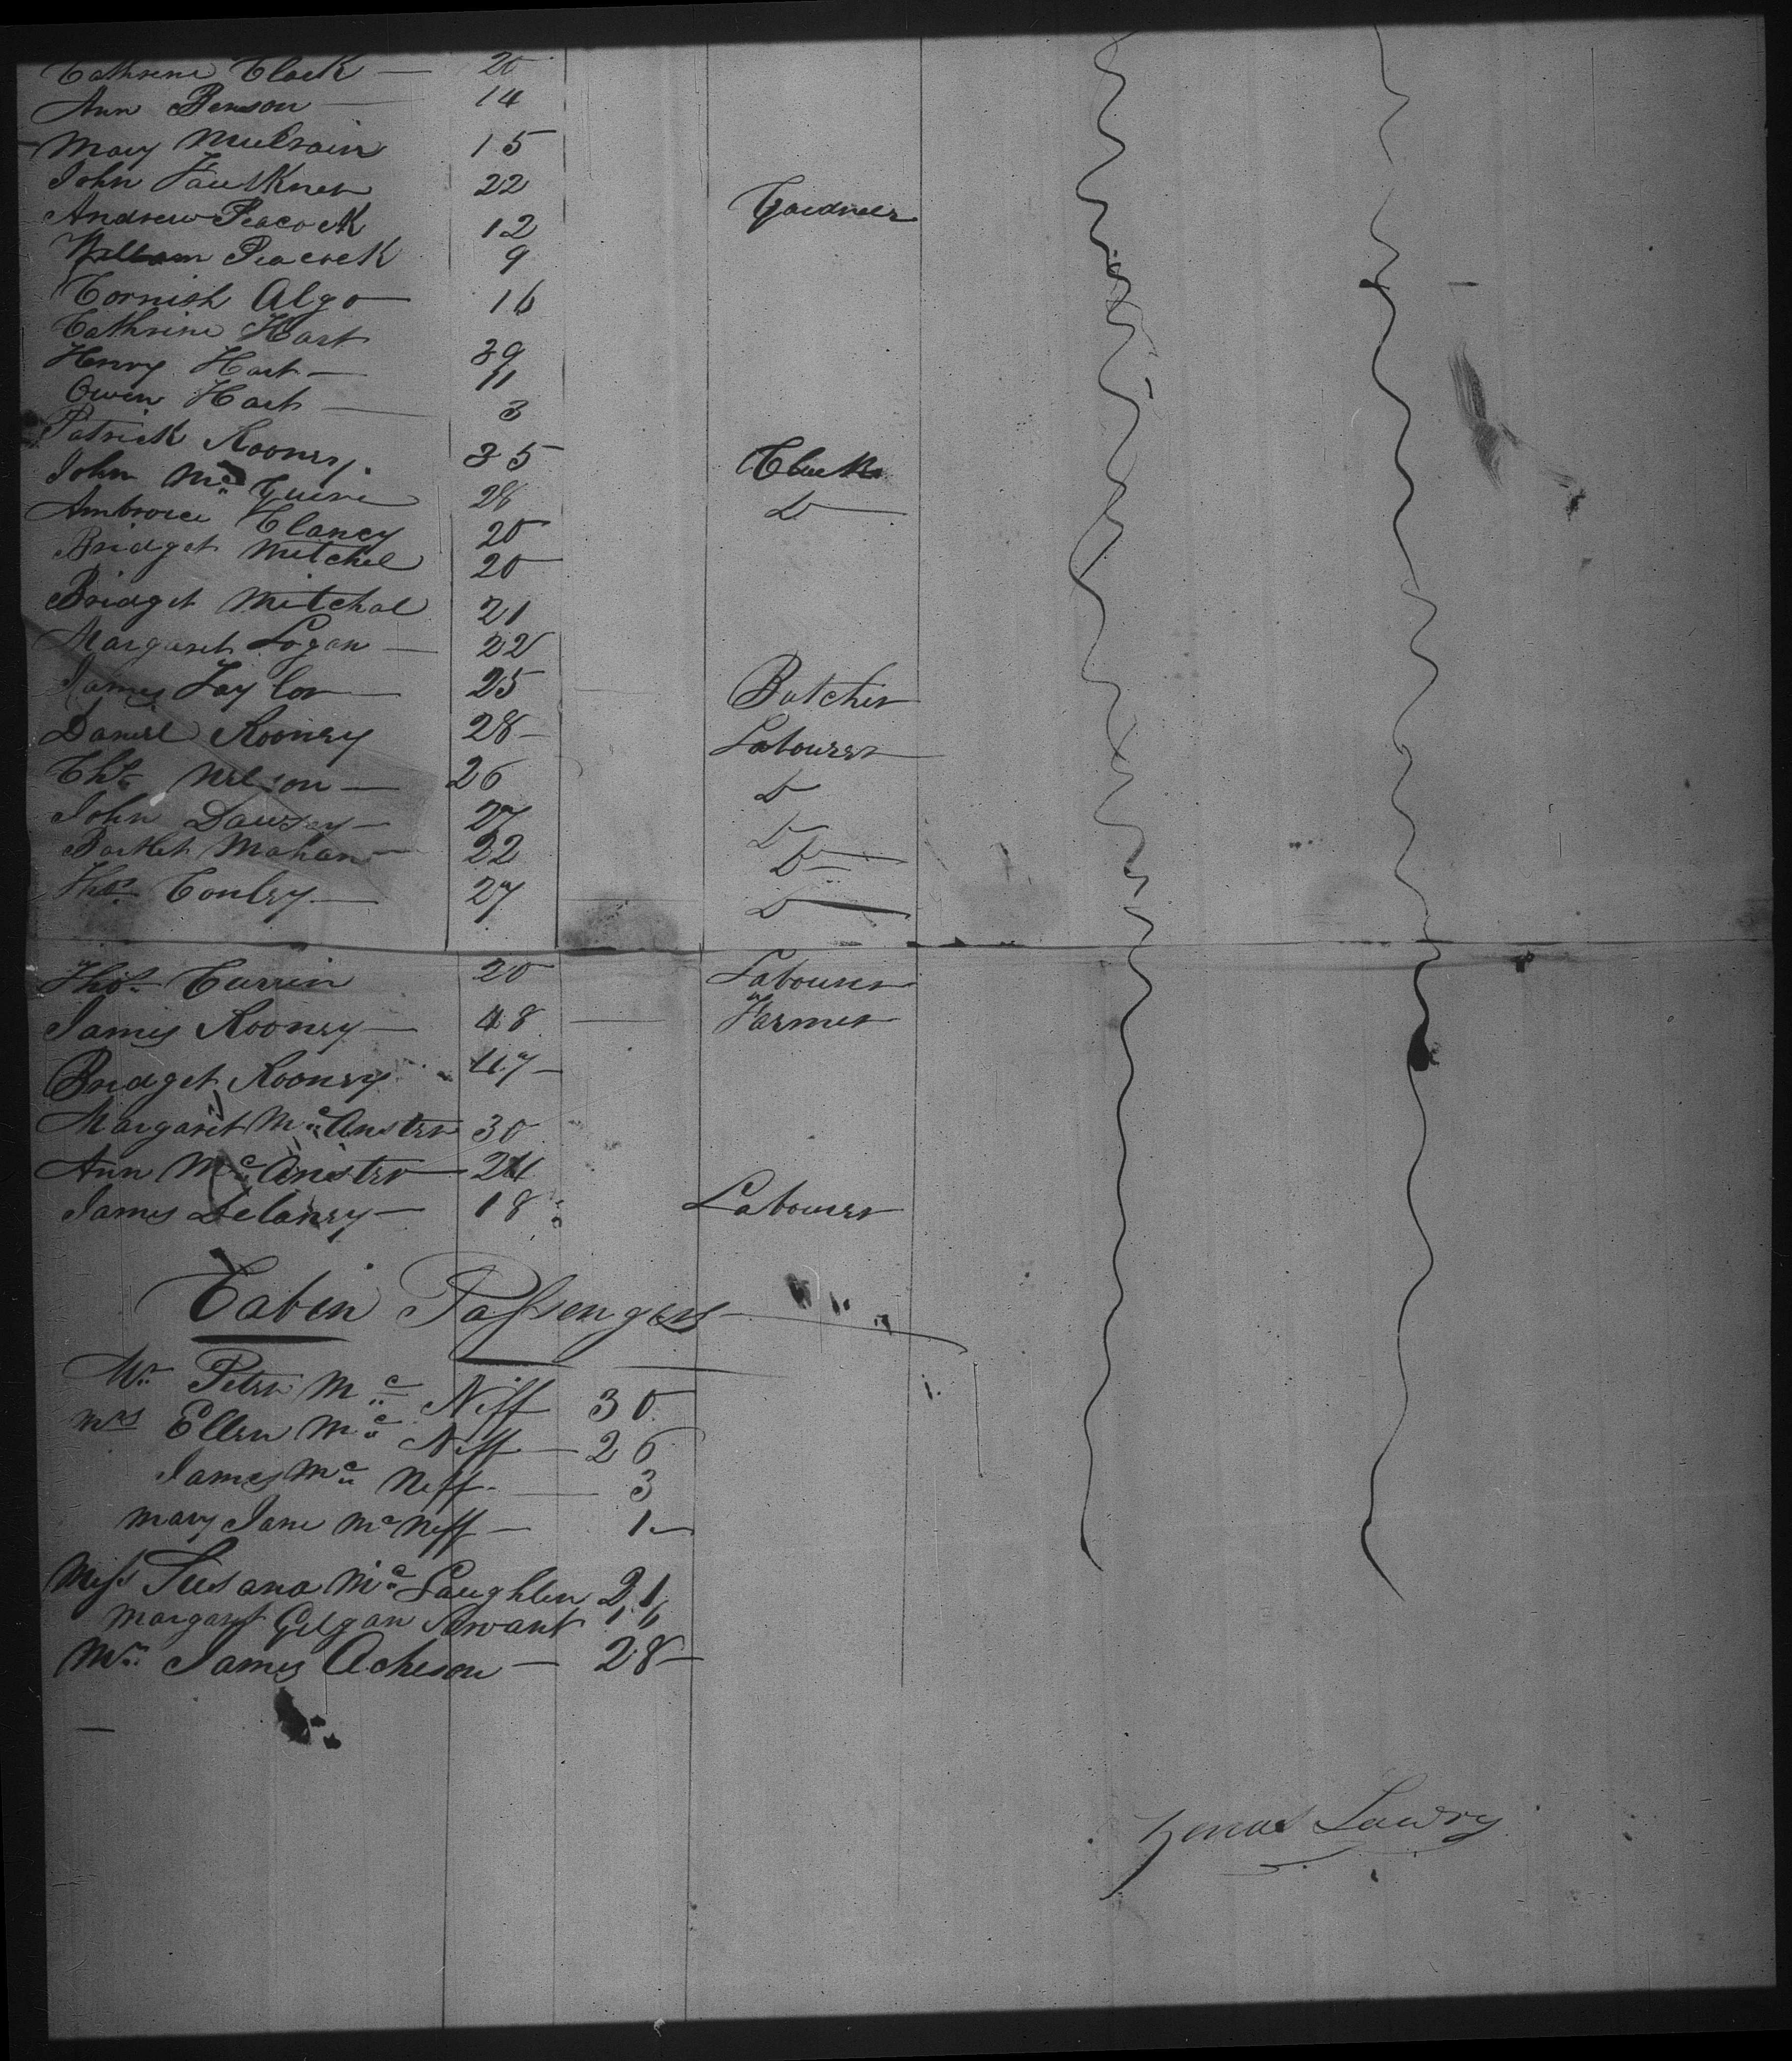 Cathrine Clark — 20
Ann Benson — 14
Mary Mulvain 15
John Faulkner 22 Gardner
Andrew Peacock 12
William Peacock 9
Cornish Algo — 16
Cathrine Hart 39
Henry Hart — 11
Owen Hart — 3
Patrick Rooney. 35 Clerk
John Mc Guire 28 Do —
Ambroice Clancy 20
Bridget Mitchel 20
Bridget Mitchal 21
Margaret Logan — 22
James Taylor — 25 Butcher
Daniel Rooney 28 — Labourer
Chs Nelson — 26 Do
John Dawsey — 27 Do —
Bartlet Mahan — 22 Do —
Thos Conley — 27 Do —
Thos Currin 20 Labourer
James Rooney — 48 — Farmer
Bridget Rooney 47 —
Margaret Mc Anster 30
Ann Mc Anster — 24
James Delaney — 18 Labourer
Cabin Passengers
Mr Peter Mc Niff 30
Mrs Ellen Mc Niff — 26
James Mc Neff — 3
Mary Jane Mc Neff — 1 —
Miss Susana Mc Laughlin 21
Margaret Gilgan Servant 16
Mr James Acheson — 28 —
Zenas Lawry